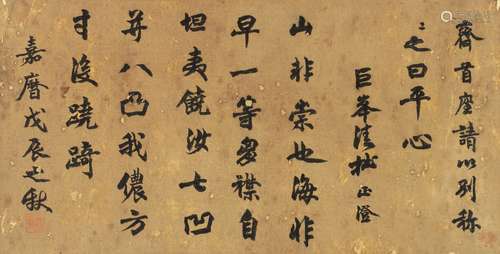 齋首座請以列称
々之曰平心
巨峯清拙正澄
山非崇也海非
一等襟自
坦夷饒汝七凹
并八凸我儂方
寸没蹺踦
嘉曆戊辰之秋